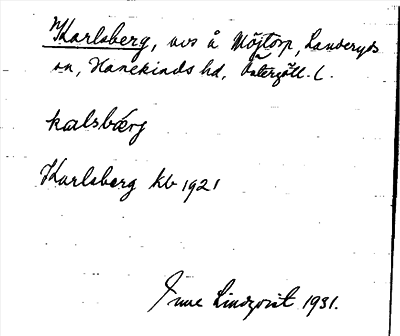 Karlsberg, avs å Möjtorp, Landeryds
sn, Hanekinds hd, Östergötl. l.
kalsbærg
Karlsberg kb 1921
Ture Lindqvist 1931.